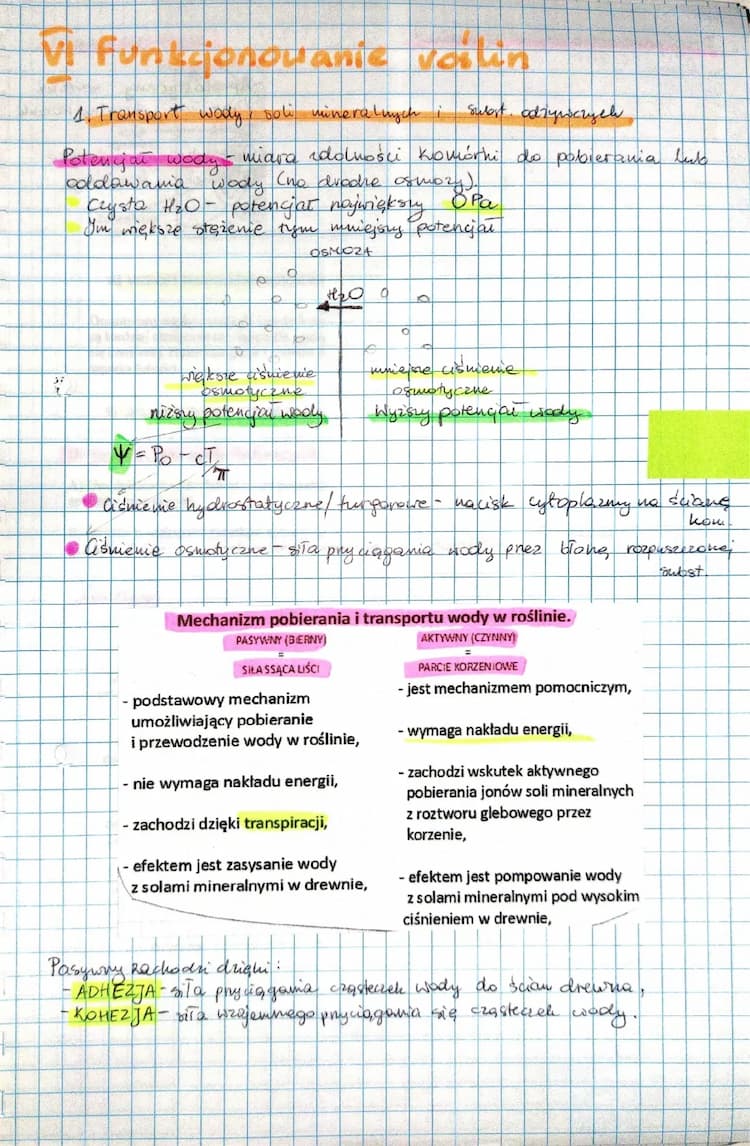 VI Funkcjonowanie roślin
1. Transport wody, soli mineralnych i subst. odżywczych
Potencjał wody - miara zdolności komórki do pobierania lub
oddawania wody (na drodze osmozy)
Czysta H2O - potencjał największy 0 Pa
Im większe stężenie tym mniejszy potencjał
OSMOZA
H2O
większe ciśnienie
osmotyczne
niższy potencjał wody
mniejsze ciśnienie
osmotyczne
Wyższy potencjał wody
Ψ = P0 - cT
π
Ciśnienie hydrostatyczne/turgorowe - nacisk cytoplazmy na ścianę
kom.
Ciśnienie osmotyczne - siła przyciągania wody przez błonę, rozpuszczonej
subst.
Mechanizm pobierania i transportu wody w roślinie.
PASYWNY (BIERNY)
=
SIŁA SSĄCA LIŚCI
- podstawowy mechanizm
umożliwiający pobieranie
i przewodzenie wody w roślinie,
- nie wymaga nakładu energii,
- zachodzi dzięki transpiracji,
- efektem jest zasysanie wody
z solami mineralnymi w drewnie,
AKTYWNY (CZYNNY)
=
PARCIE KORZENIOWE
- jest mechanizmem pomocniczym,
- wymaga nakładu energii,
- zachodzi wskutek aktywnego
pobierania jonów soli mineralnych
z roztworu glebowego przez
korzenie,
- efektem jest pompowanie wody
z solami mineralnymi pod wysokim
ciśnieniem w drewnie,
Pasywny zachodzi dzięki:
- ADHEZJA - siła przyciągania cząsteczek wody do ścian drewna,
- KOHEZJA - siła wzajemnego przyciągania się cząsteczek wody.